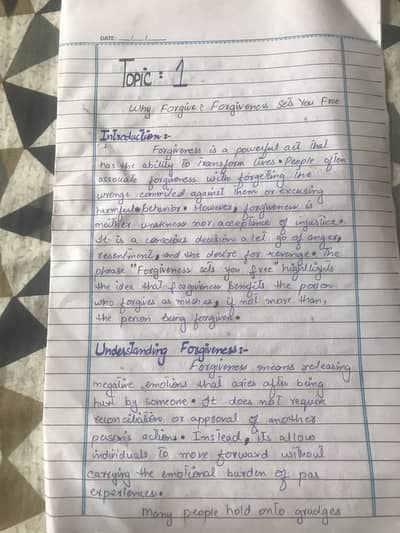 DATE: __/__/__
TOPIC : 1
Why Forgive? Forgiveness Sets You Free
Introduction:-
Forgiveness is a powerful act that
has the ability to transform lives. People often
associate forgiveness with forgetting the
wrongs commited against them or excusing
harmful behavior. However, forgiveness is
neither weakness nor acceptance of injustice.
It is a conscious decision a let go of anger,
resentment, and the desire for revenge. The
phrase "Forgiveness sets you free" highlights
the idea that forgiveness benefits the person
who forgives as much as, if not more than,
the person being forgiven.
Understanding Forgiveness:-
Forgiveness means releasing
negative emotions that aries after being
hurt by someone. It does not require
reconciliation or approval of another
person's actions. Instead, its allow
individuals to move forward without
carrying the emotional burden of pas
experiences.
Many people hold onto grudges